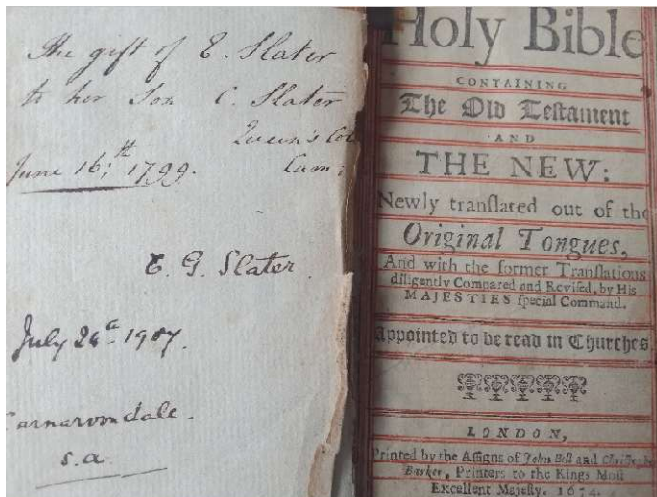 The gift of E. Slater
to her Son C. Slater
Queen's Col
June 16,th 1799. Cam:
E. G. Slater.
July 26th 1907.
Carnarvondale.
S.A.
Holy Bible
CONTAINING
The Old Testament
AND
THE NEW:
Newly tranſlated out of the
Original Tongues,
And with the former Tranſlations
diligently Compared and Reviſed, by His
MAJESTIES ſpecial Command.
Appointed to be read in Churches.
LONDON,
Printed by the Aſſigns of John Bill and
Barker, Printers to the Kings Moſt
Excellent Majeſty. 1674